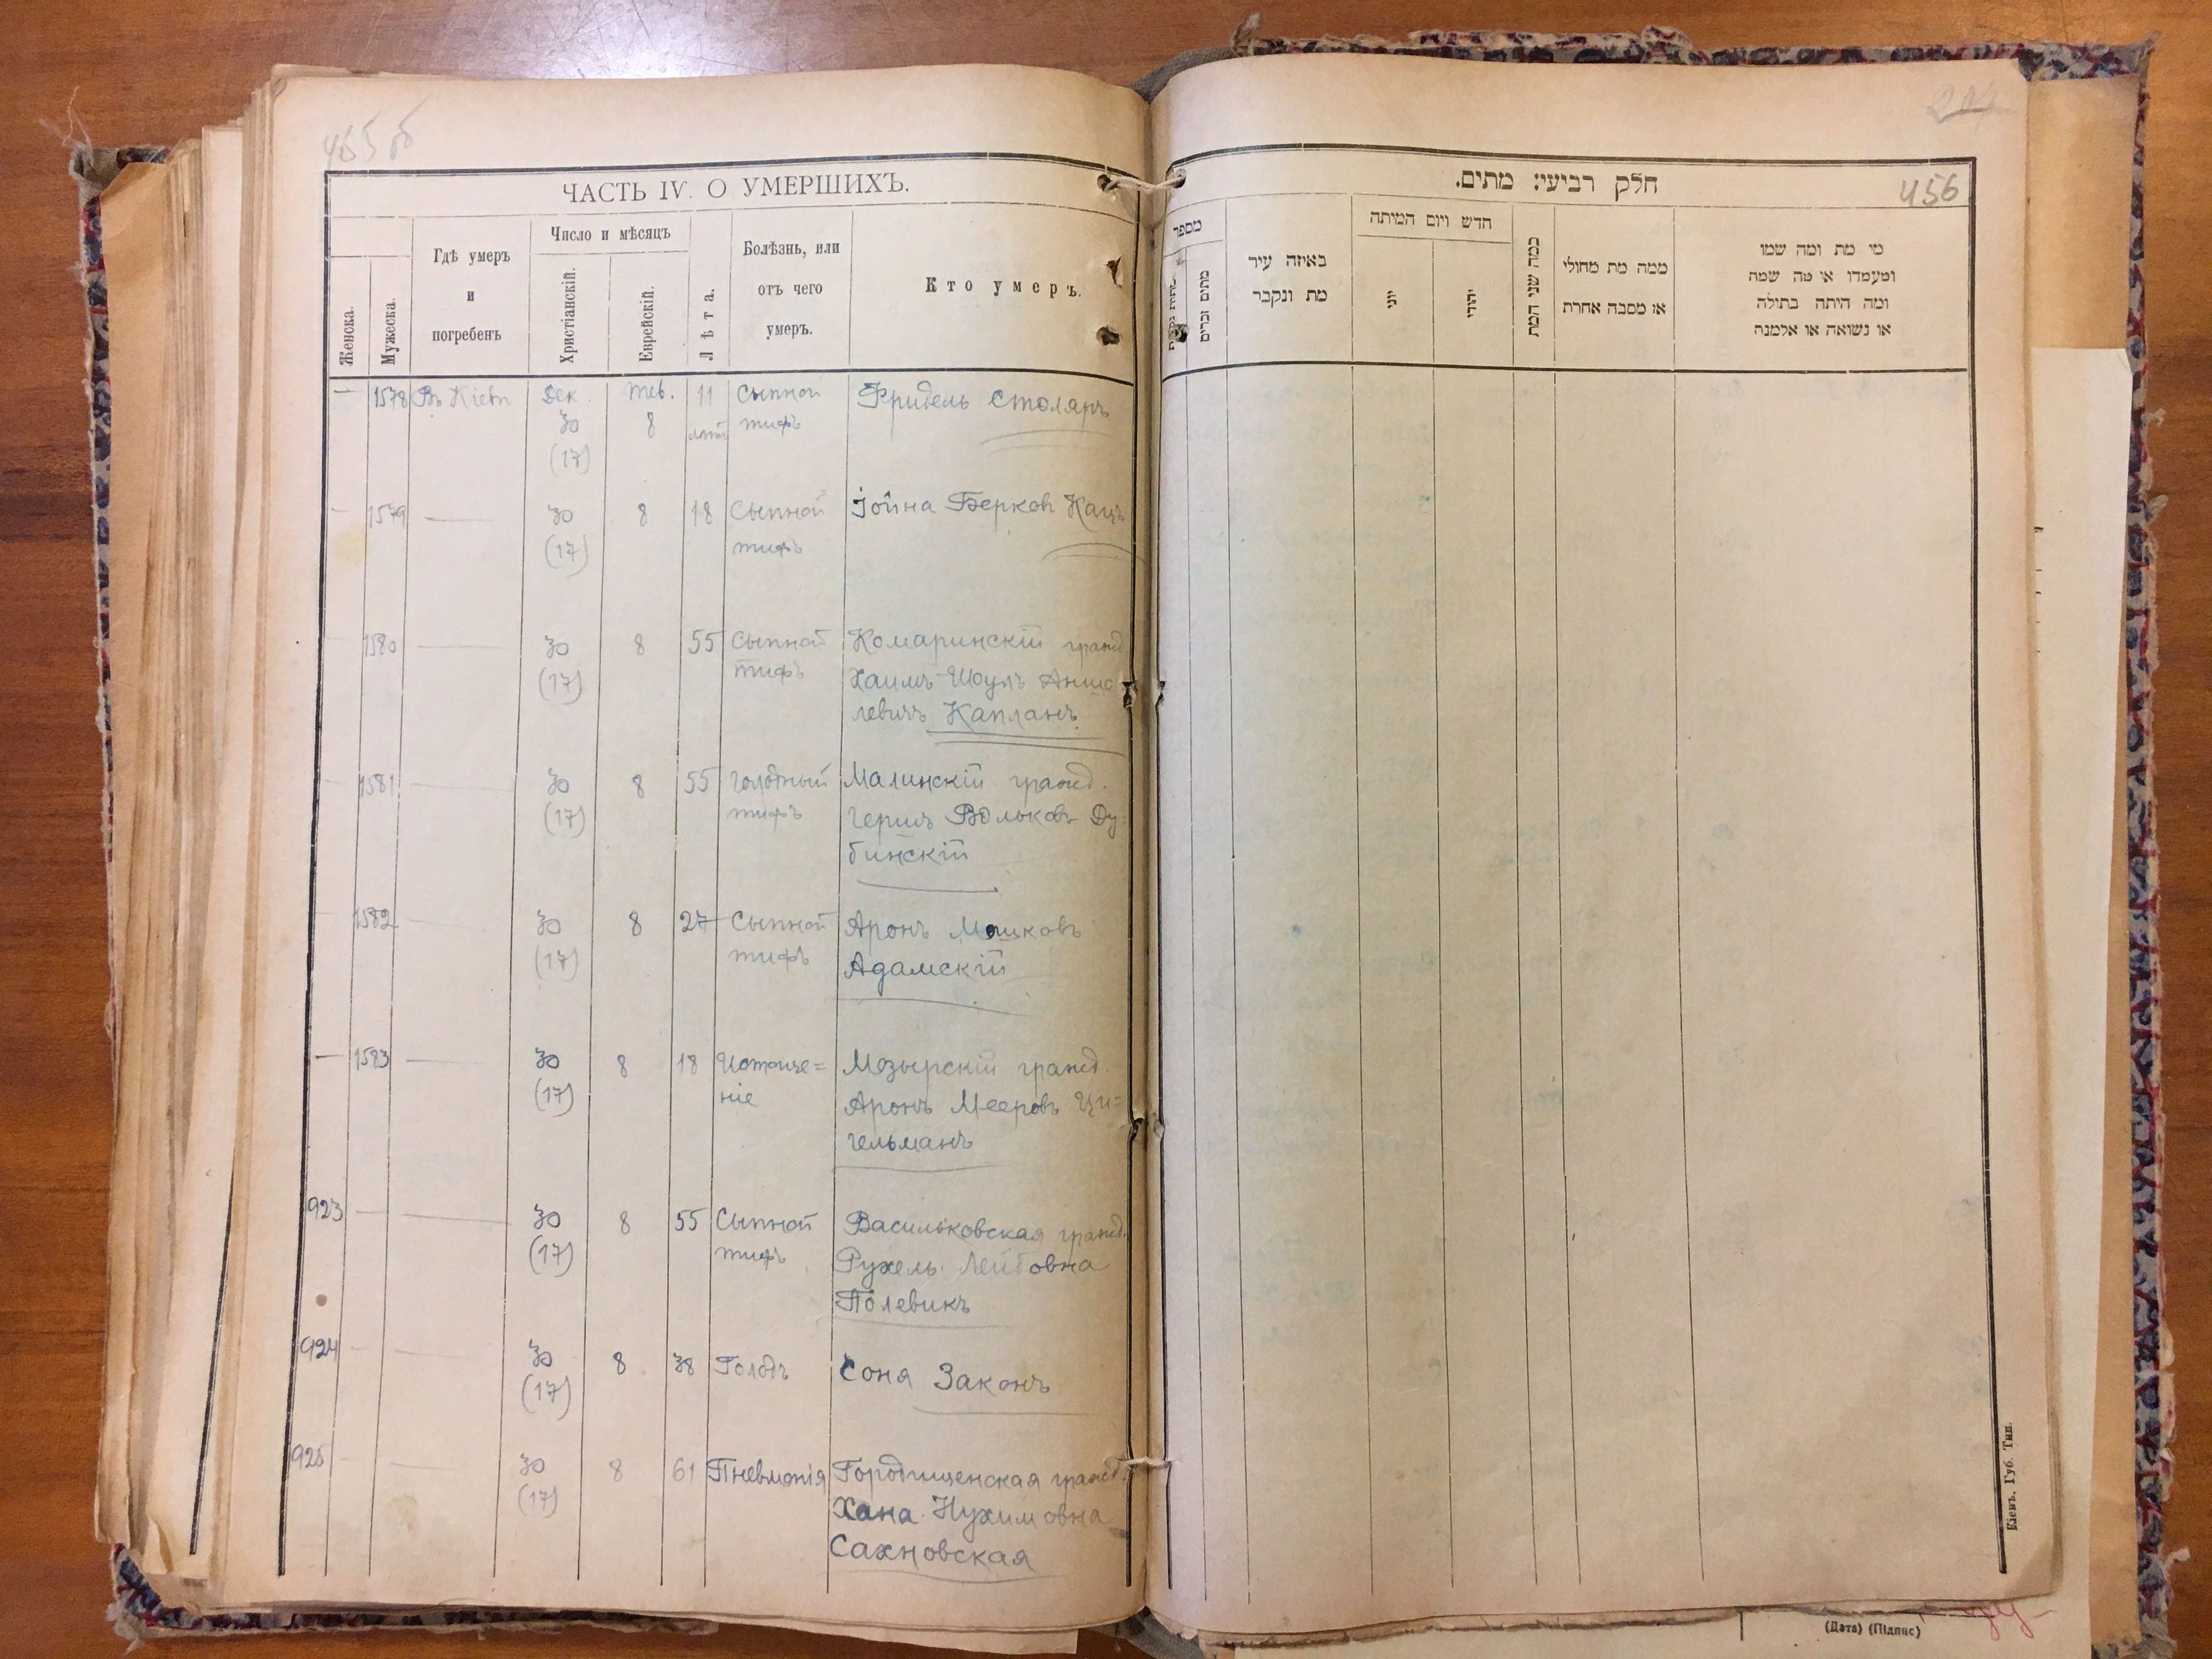 455 об
ЧАСТЬ IV. О УМЕРШИХЪ.
Женска.
Мужеска.
Гдѣ умеръ
и
погребенъ
Число и мѣсяцъ
Христіанскій.
Еврейскій.
Лѣта.
Болѣзнь, или
отъ чего
умеръ.
Кто умеръ.
— 1578 Въ Кіевѣ Дек. Тев. 11 Сыпной Фридель Столяръ
30 8 лѣтъ тифъ
(17)
— 1579 — 30 8 18 Сыпной Іойна Берковъ Кацъ
(17) тифъ
1580 — 30 8 55 Сыпной Комаринскій гражд.
(17) тифъ Хаимъ-Шоулъ Аншe
левичъ Капланъ
1581 — 30 8 55 Голодный Малинскій гражд.
(17) тифъ Гершъ Вольковъ Ду-
бинскій
1582 — 30 8 27 Сыпной Аронъ Мошковъ
(17) тифъ Адамскій
— 1583 — 30 8 18 Истоще= Мозырскій гражд.
(17) ніе Аронъ Мееровъ Ци=
гельманъ
923 — — 30 8 55 Сыпной Васильковская гражд.
(17) тифъ Рухель Лейбовна
Полевикъ
924 — — 30 8 38 Голодъ Соня Законъ
(17)
925 — — 30 8 61 Пневмонія Городищенская гражд.
(17) Хана Нухимовна
Сахновская
456
חלק רביעי: מתים.
מספר
מתים זכרים
באיזה עיר
מת ונקבר
חדש ויום המיתה
יוני
יהודי
כמה שני המת
ממה מת מחולי
או מסבה אחרת
מי מת ומה שמו
ומעמדו או מה שמה
ומה היתה בתולה
או נשואה או אלמנה
Кіевъ, Губ. Тип.
(Дата) (Підпис)